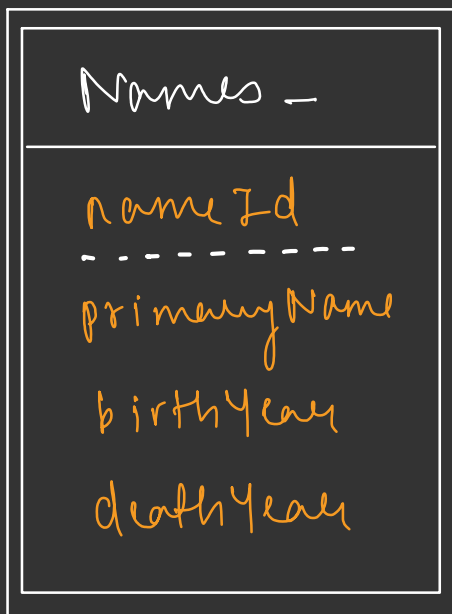 Names -
nameId
primaryName
birthYear
deathYear